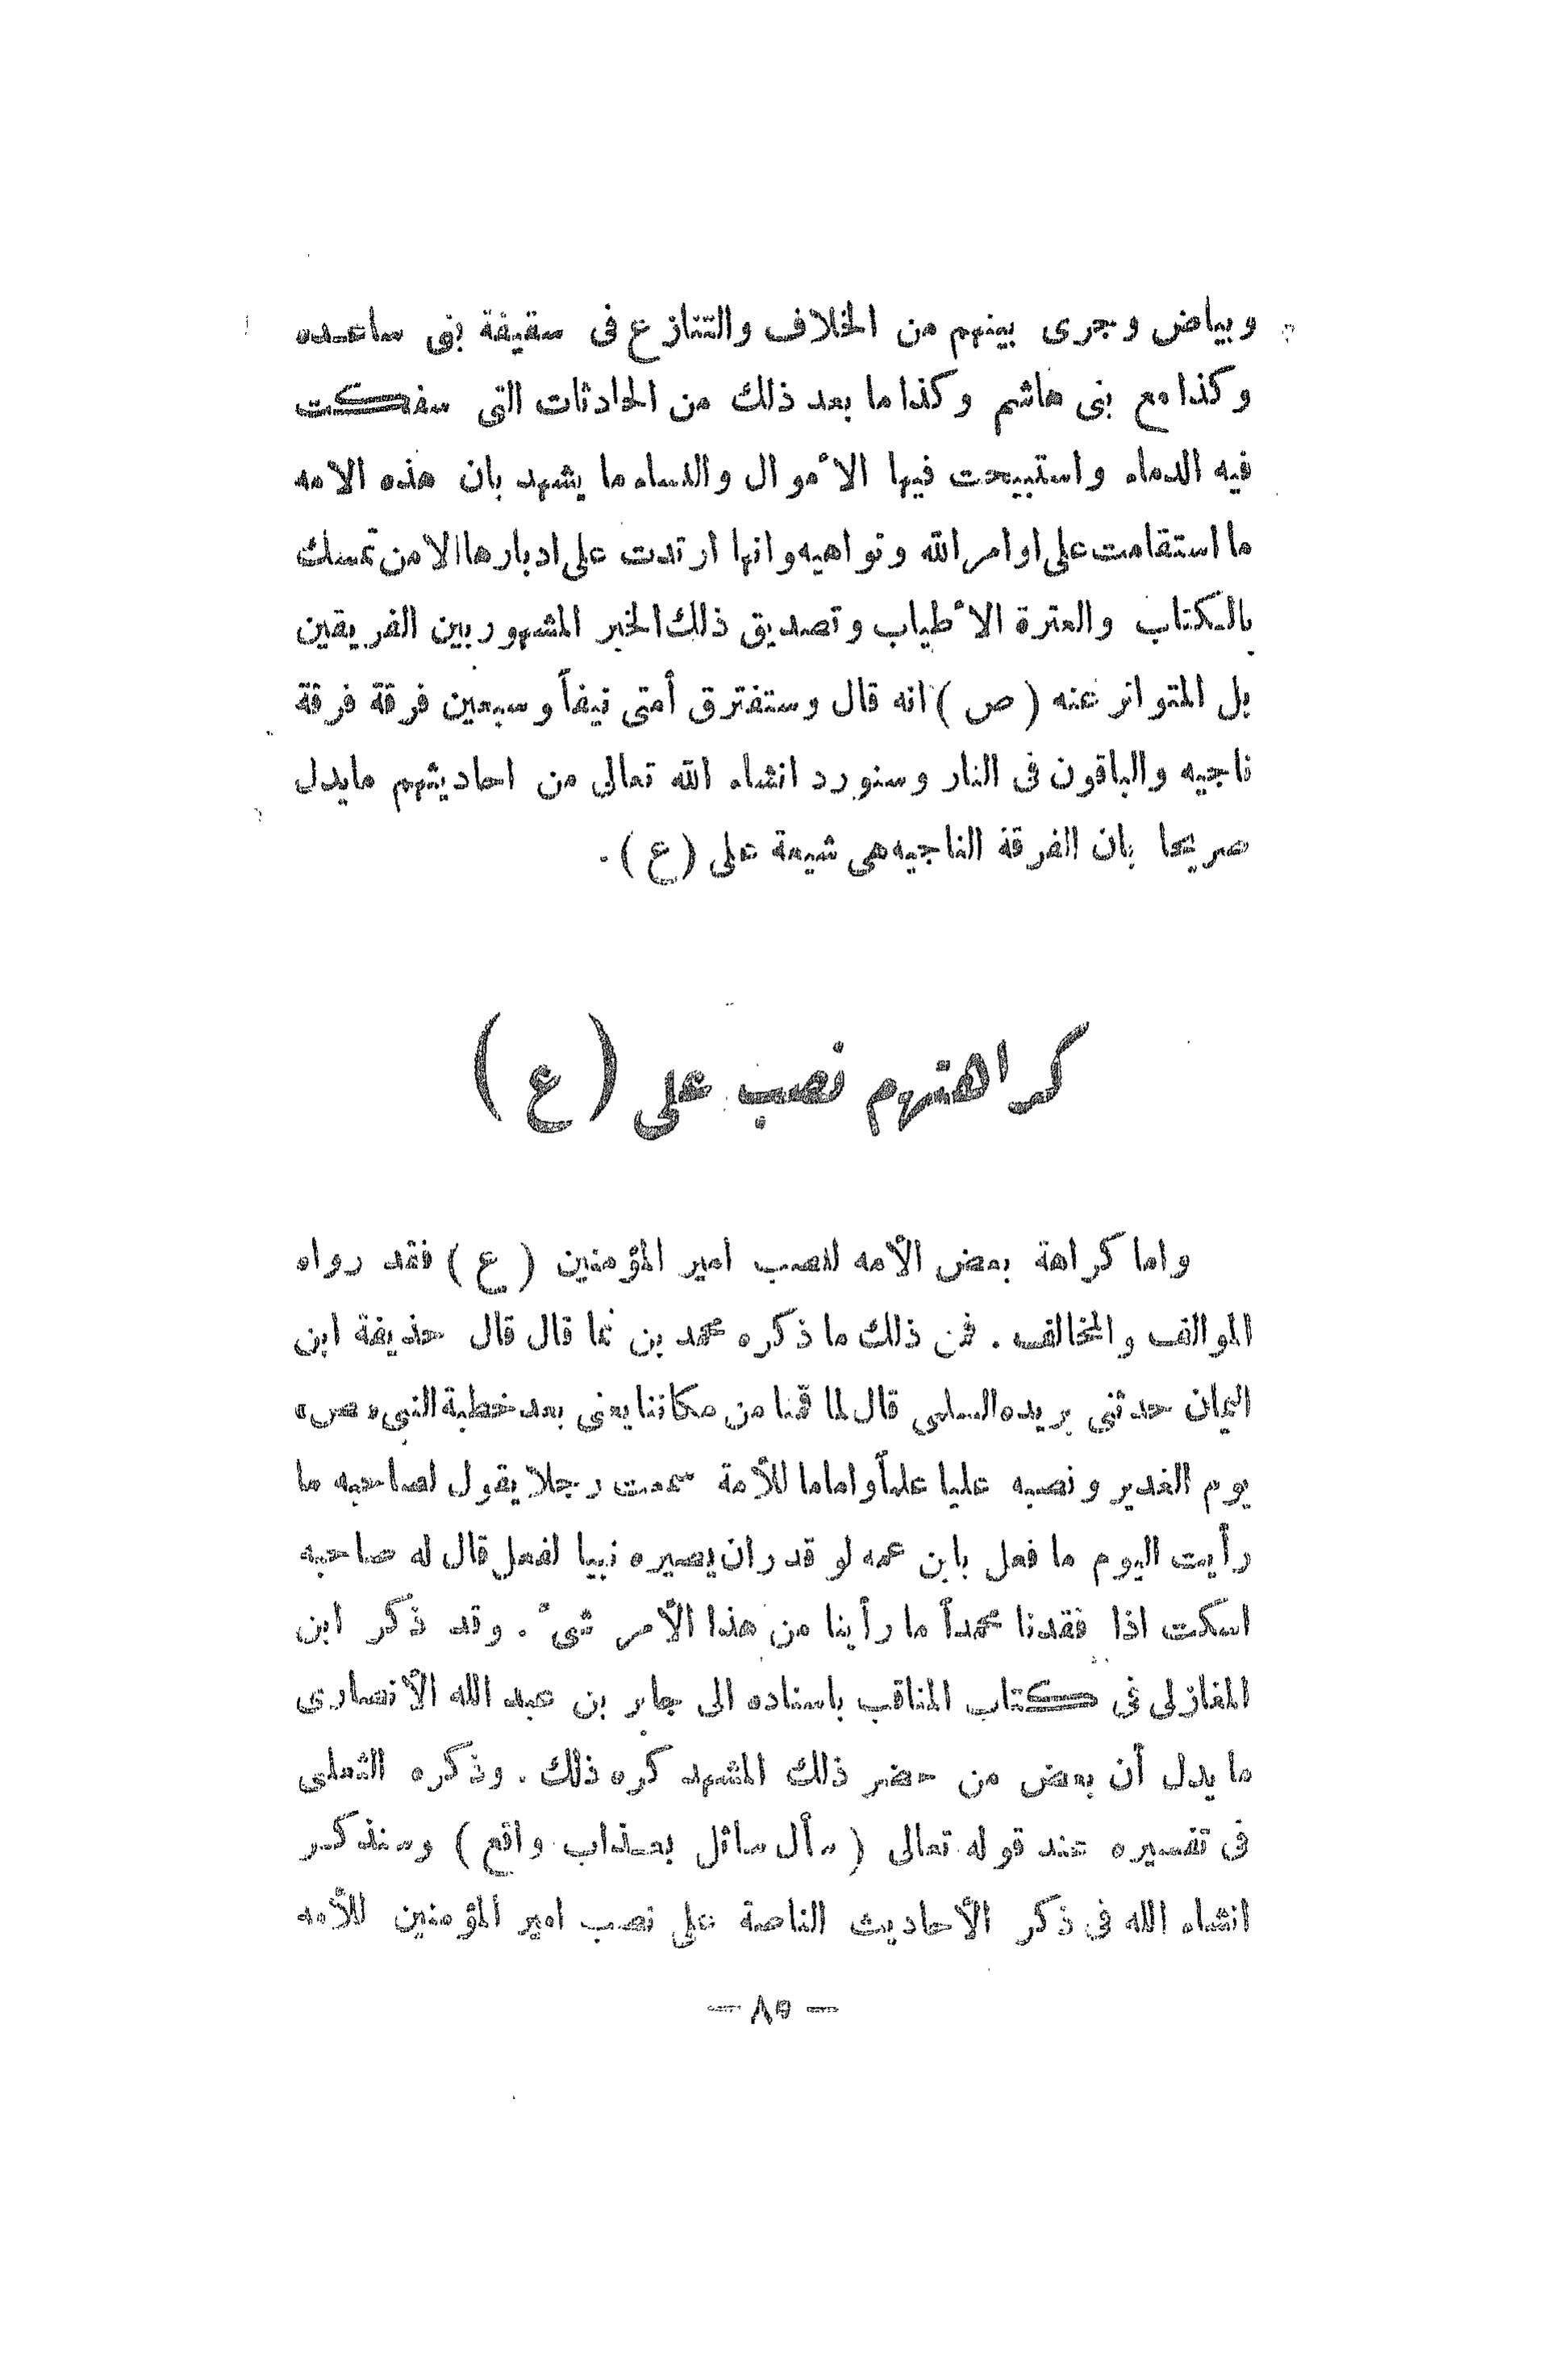 وبياض وجرى بينهم من الخلاف والتنازع فى سقيفة بنى ساعده
وكذا مع بنى هاشم وكذا ما بعد ذلك من الحادثات التى سفكت
فيه الدماء واستبيحت فيها الأموال والنساء ما يشهد بان هذه الامه
ما استقامت على اوامر الله ونواهيه وانها ارتدت على ادبارها الا من تمسك
بالكتاب والعترة الأطياب وتصديق ذلك الخبر المشهور بين الفريقين
بل المتواتر عنه ( ص ) انه قال وستفترق أمتى نيفاً وسبعين فرقة فرقة
ناجيه والباقون فى النار وسنورد انشاء الله تعالى من احاديثهم مايدل
صريحا بان الفرقة الناجيه هى شيعة على (ع ) .
كراهتهم نصب على ( ع )
واما كراهة بعض الأمه لنصب امير المؤمنين ( ع ) فقد رواه
الموالف والمخالف . فمن ذلك ما ذكره محمد بن نما قال قال حذيفة ابن
اليمان حدثنى بريده السلمى قال لما قمنا من مكاننا يعنى بعد خطبة النبى « ص »
يوم الغدير ونصبه عليا علماً واماما للأمة سمعت رجلا يقول لصاحبه ما
رأيت اليوم ما فعل بابن عمه لو قدر ان يصيره نبيا لفعل قال له صاحبه
اسكت اذا فقدنا محمداً ما رأينا من هذا الأمر شىء . وقد ذكر ابن
المغازلى فى كتاب المناقب باسناده الى جابر بن عبد الله الأنصارى
ما يدل أن بعض من حضر ذلك المشهد كره ذلك . وذكره الثعلبى
فى تفسيره عند قوله تعالى ( سأل سائل بعذاب واقع ) وسنذكر
انشاء الله فى ذكر الأحاديث الناصة على نصب امير المؤمنين للأمه
— ٨٥ —